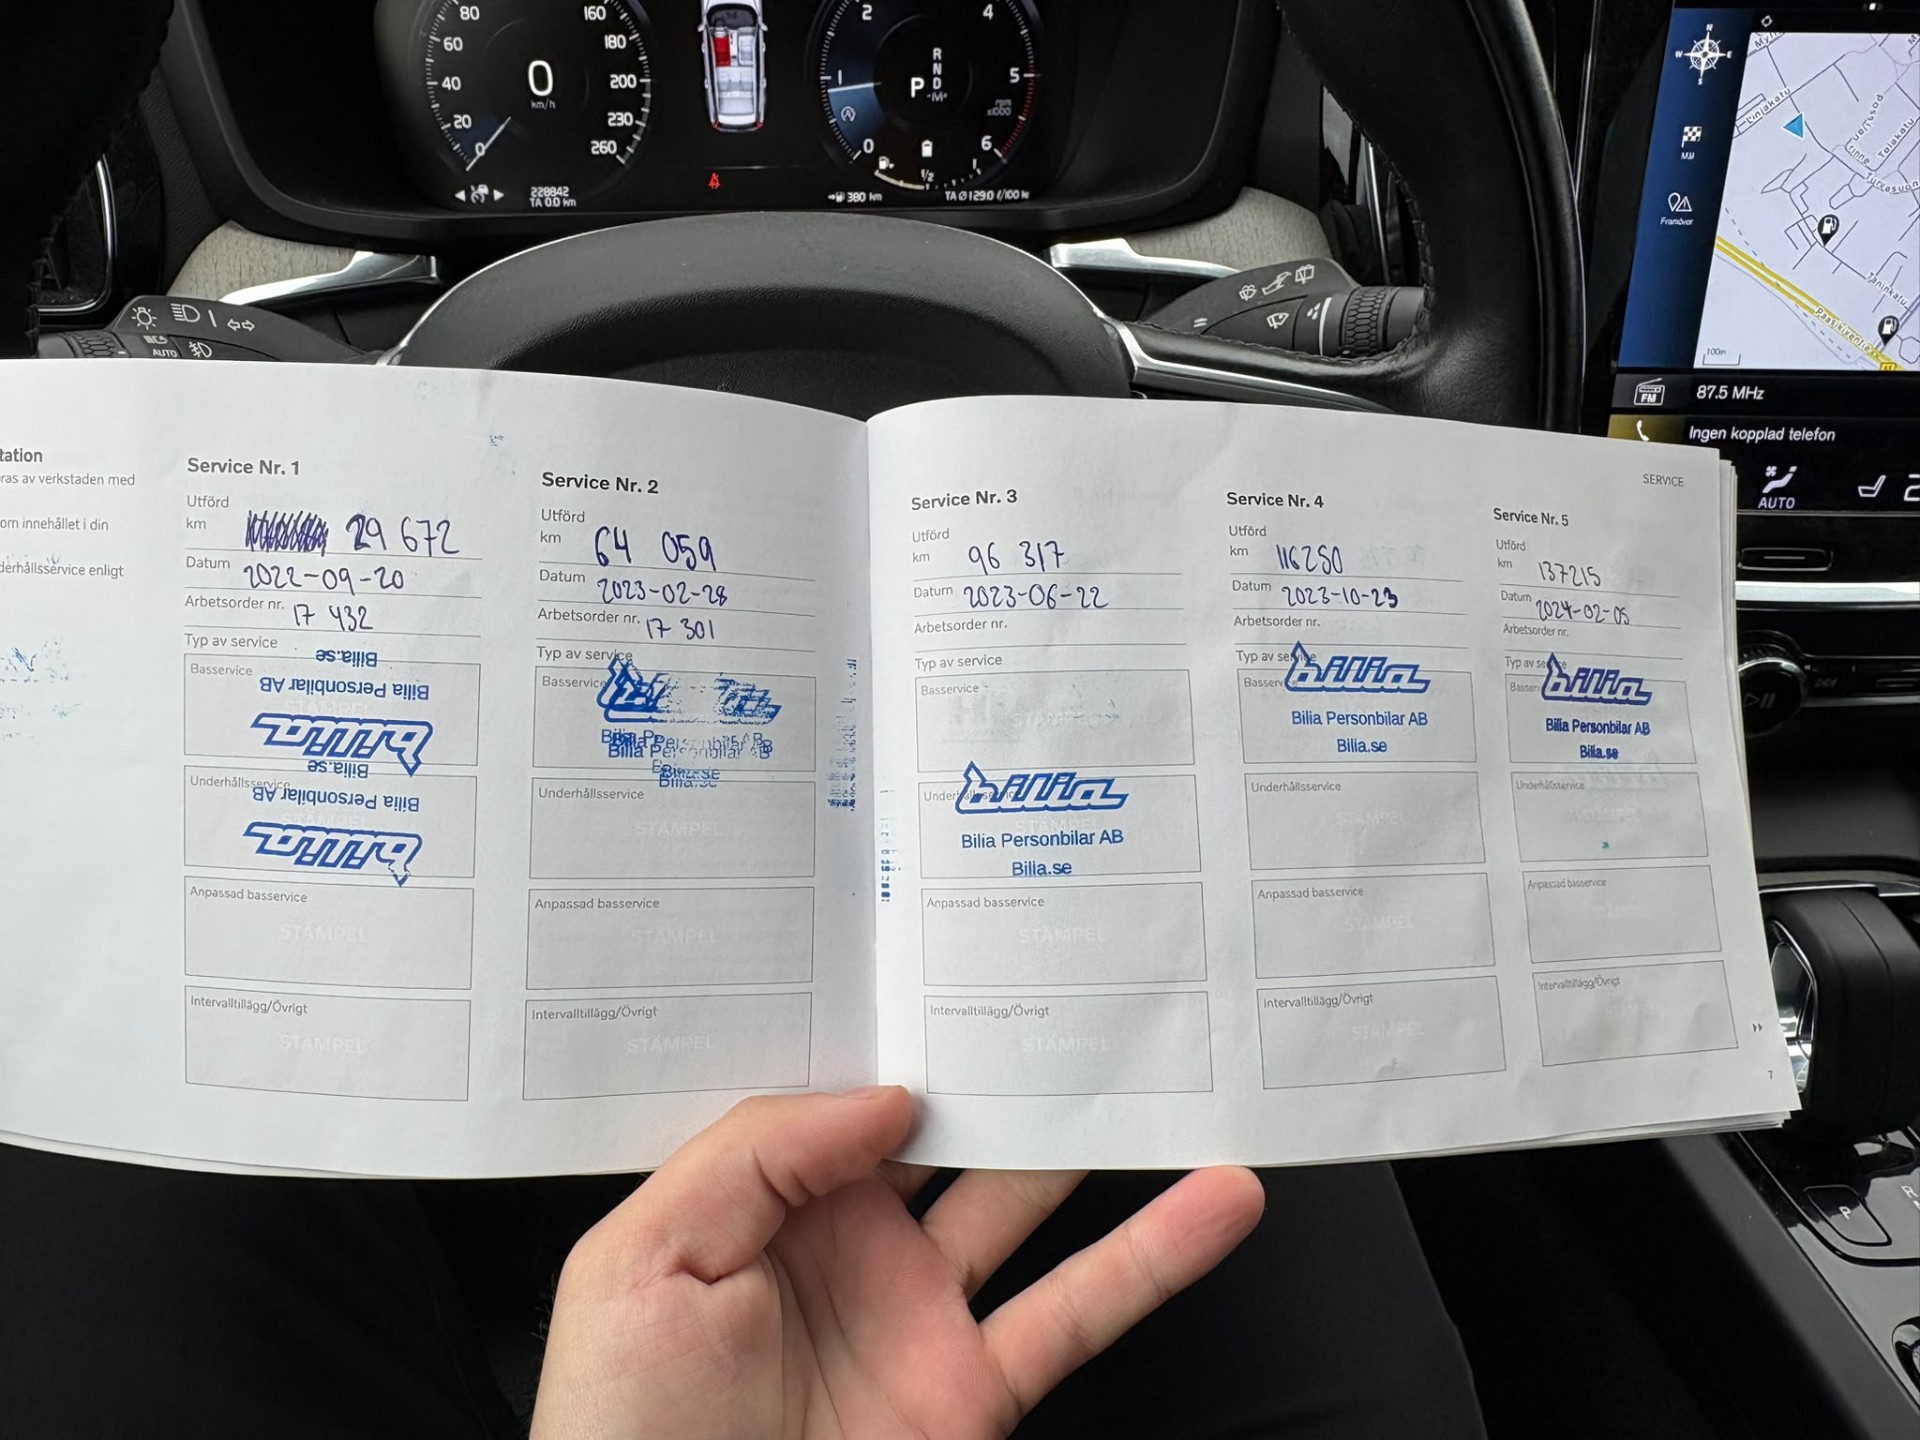 80
60
40
20
0
160
180
200
230
260
0
km/h
228842
TA 0.0 km
2
4
1
5
0
6
R
N
D
-M-
P
rpm
x1000
1/2
380 km
TA Ø 129.0 ℓ/100 km
AUTO
N
W
E
S
Mål
Framöver
Linjakatu
Talakatu
Taninkatu
100m
FM
87.5 MHz
Ingen kopplad telefon
AUTO
tation
ras av verkstaden med
om innehållet i din
derhållsservice enligt
Service Nr. 1
Utförd
km 29 672
Datum 2022-09-20
Arbetsorder nr. 17 432
Typ av service
Basservice
Bilia.se
Bilia Personbilar AB
bilia
STÄMPEL
Underhållsservice
Bilia.se
Bilia Personbilar AB
bilia
Anpassad basservice
STÄMPEL
Intervalltillägg/Övrigt
STÄMPEL
Service Nr. 2
Utförd
km 64 059
Datum 2023-02-28
Arbetsorder nr. 17 301
Typ av service
Basservice
Bilia Personbilar AB
Bilia.se
Underhållsservice
STÄMPEL
Anpassad basservice
STÄMPEL
Intervalltillägg/Övrigt
STÄMPEL
SERVICE
Service Nr. 3
Utförd
km 96 317
Datum 2023-06-22
Arbetsorder nr.
Typ av service
Basservice
STÄMPEL
Underhållsservice
bilia
Bilia Personbilar AB
Bilia.se
Anpassad basservice
STÄMPEL
Intervalltillägg/Övrigt
STÄMPEL
Service Nr. 4
Utförd
km 116250
Datum 2023-10-23
Arbetsorder nr.
Typ av service
Basservice
bilia
Bilia Personbilar AB
Bilia.se
Underhållsservice
STÄMPEL
Anpassad basservice
STÄMPEL
Intervalltillägg/Övrigt
STÄMPEL
Service Nr. 5
Utförd
km 137215
Datum 2024-02-05
Arbetsorder nr.
Typ av service
Basservice
bilia
Bilia Personbilar AB
Bilia.se
Underhållsservice
STÄMPEL
Anpassad basservice
STÄMPEL
Intervalltillägg/Övrigt
STÄMPEL
7
P
R